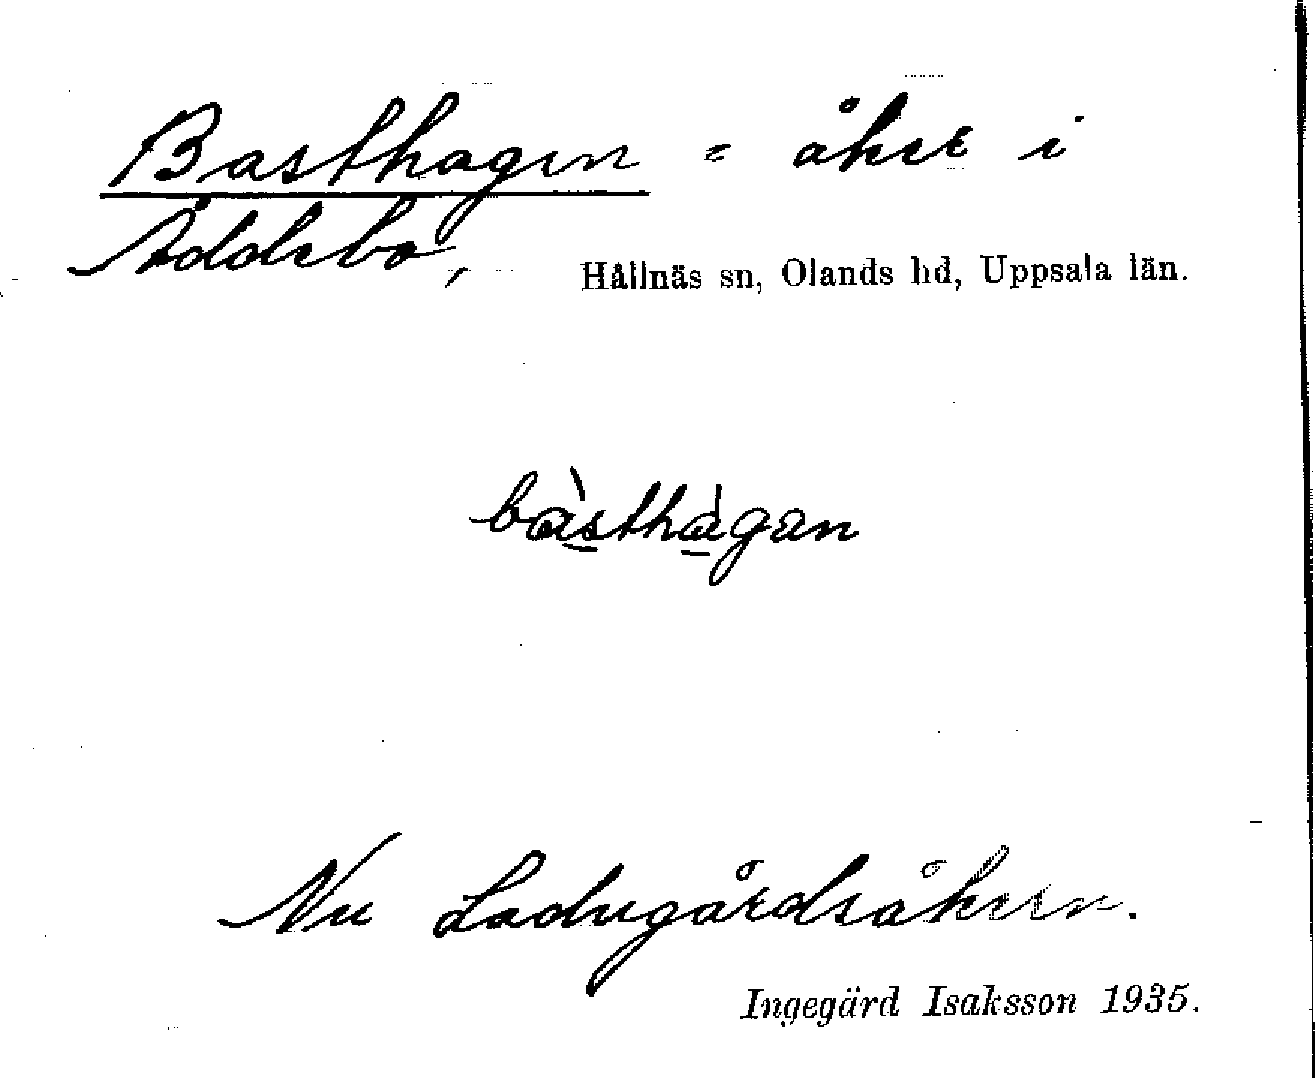 Basthagen = åker i
Åddebo,
Hållnäs sn, Olands hd, Uppsala län.
bàsthàgan
Nu Ladugårdsåkern.
Ingegärd Isaksson 1935.